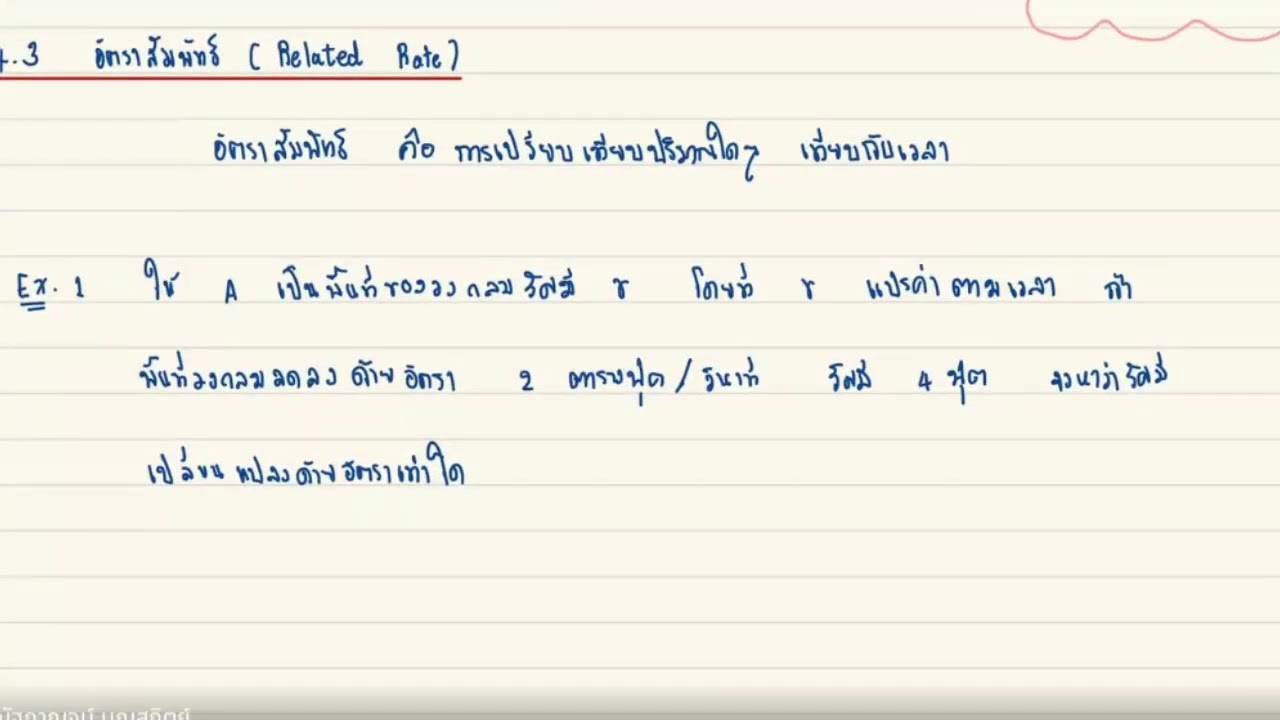 4.3 อัตราสัมพัทธ์ (Related Rate)
อัตราสัมพัทธ์ คือ การเปรียบเทียบปริมาณใดๆ เทียบกับเวลา
Ex. 1 ให้ A เป็นพื้นที่ของวงกลมรัศมี r โดยที่ r แปรค่าตามเวลา ถ้า
พื้นที่วงกลมลดลงด้วยอัตรา 2 ตารางฟุต/วินาที รัศมี 4 ฟุต จงหาว่ารัศมี
เปลี่ยนแปลงด้วยอัตราเท่าใด